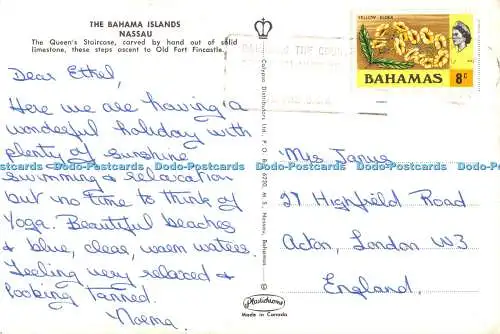 THE BAHAMA ISLANDS
NASSAU
The Queen's Staircase, carved by hand out of solid
limestone, these steps ascent to Old Fort Fincastle.
Dear Ethel,
Here we are having a
wonderful holiday with
plenty of sunshine
swimming & relaxation
but no time to think of
Yoga. Beautiful beaches
& blue, clear, warm waters.
Feeling very relaxed &
looking tanned.
Norma.
Calypso Distributors Ltd., P. O. Nassau, Bahamas
Plastichrome
Made in Canada
YELLOW ELDER
BAHAMAS 8c
Mrs
27 Highfield Road
Acton, London W3
England.
Dodo-Postcards Dodo-Postcards Dodo-Postcards Dodo-Postcards Dodo-Postcards